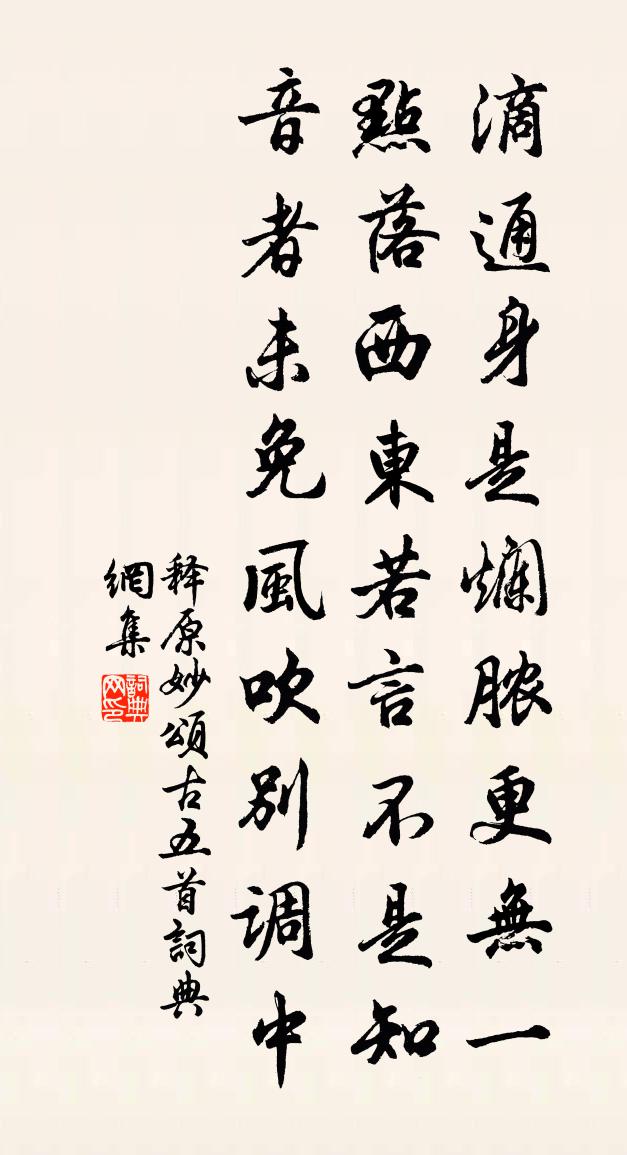 滴通身是爛脓更無一
點落西東若言不是知
音者未免風吹别调中
释原妙頌古五首詞典
網集
詞典網印